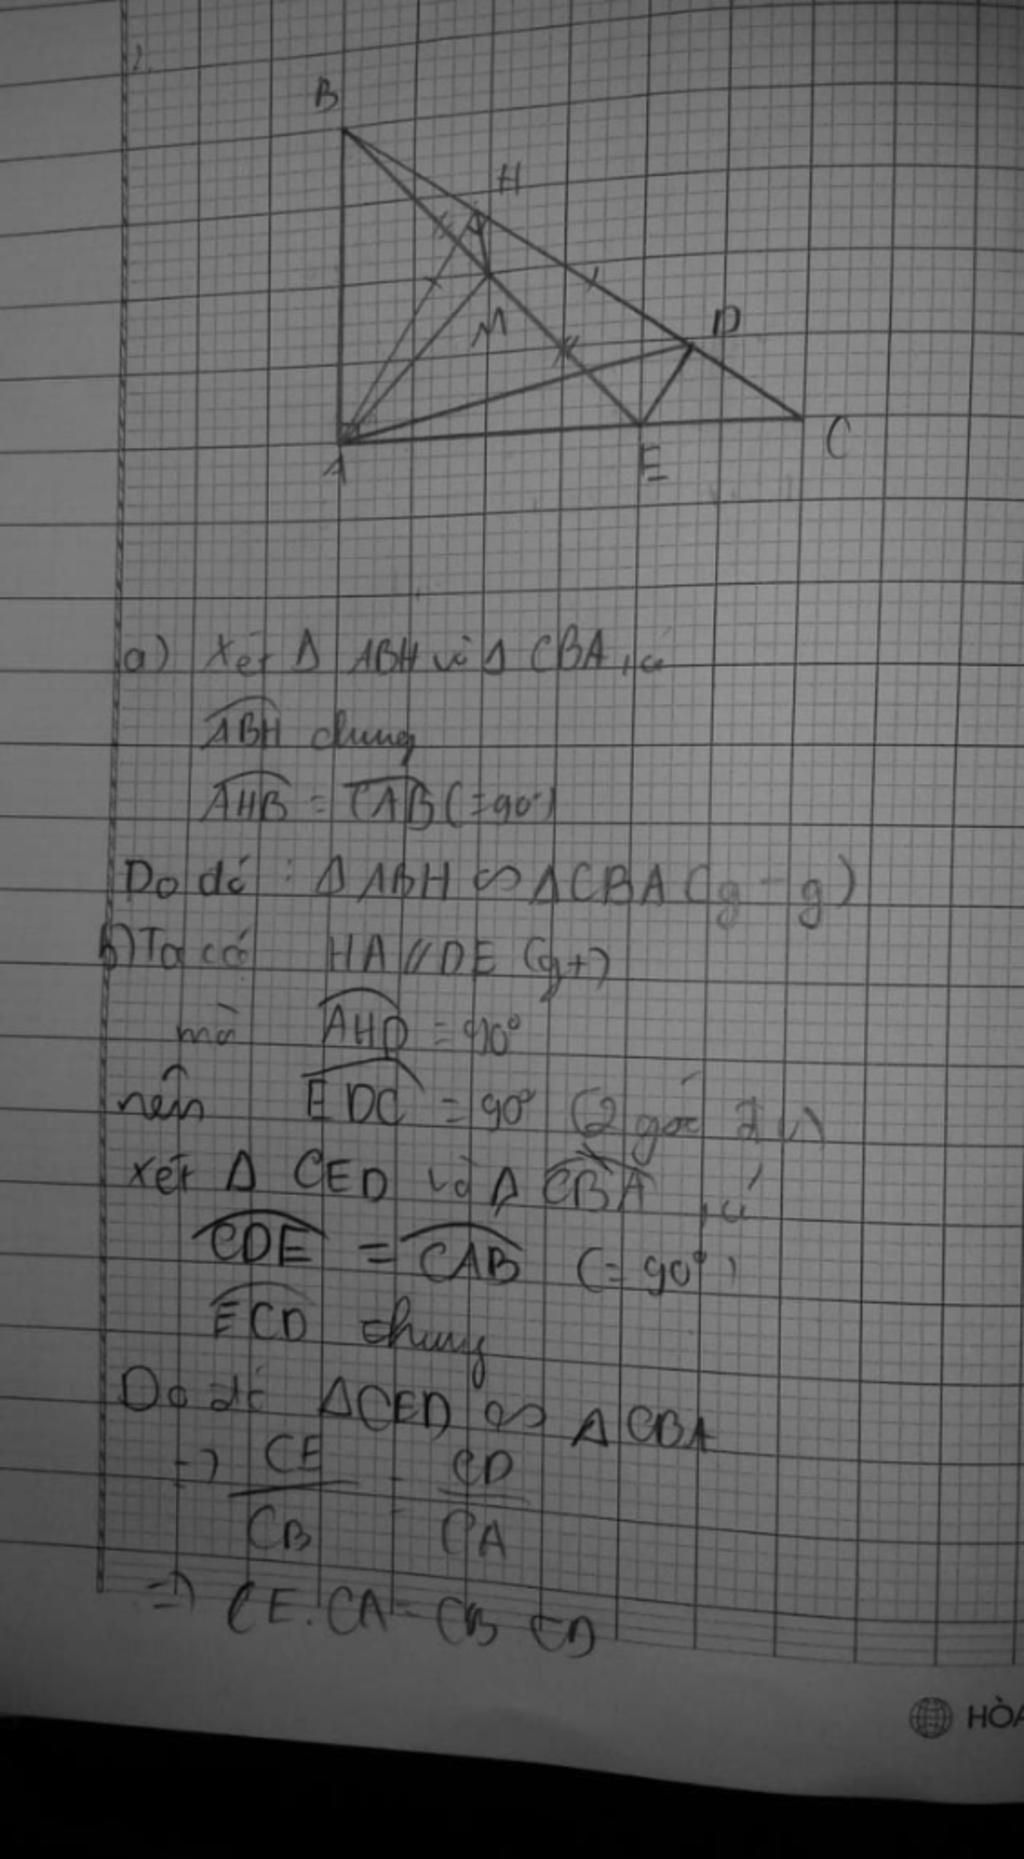 2.
B
H
M
D
A
E
C
a) Xét Δ ABH và Δ CBA, có
ABH chung
AHB = CAB (=90°)
Do đó : Δ ABH ∽ Δ CBA (g-g)
b) Ta có HA // DE (gt)
mà AHD = 90°
nên EDC = 90° (2 góc đv)
xét Δ CED và Δ CBA, có
CDE = CAB (= 90°)
ECD chung
Do đó ΔCED ∽ Δ CBA
=> CE/CB = CD/CA
=> CE.CA = CB CD
HÒA